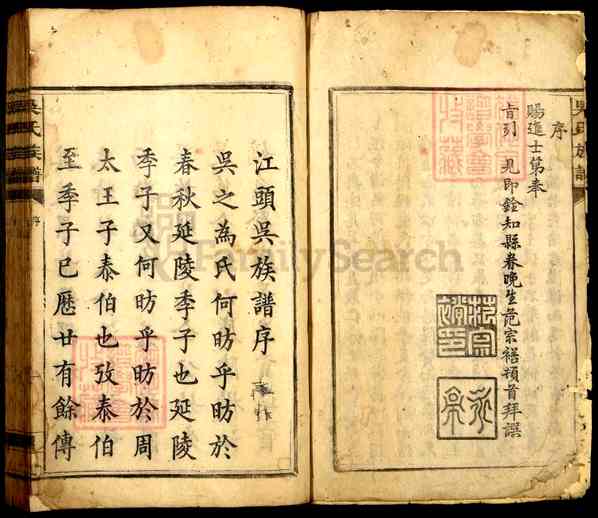 吳氏族譜
序
賜進士第奉
旨引 見即銓知縣眷晚生范宗裾頓首拜譔
江頭吳族譜序
吳之為氏何昉乎昉於
春秋延陵季子也延陵
季子又何昉乎昉於周
太王子泰伯也攷泰伯
至季子已歷廿有餘傳
吳氏族譜
序
FamilySearch